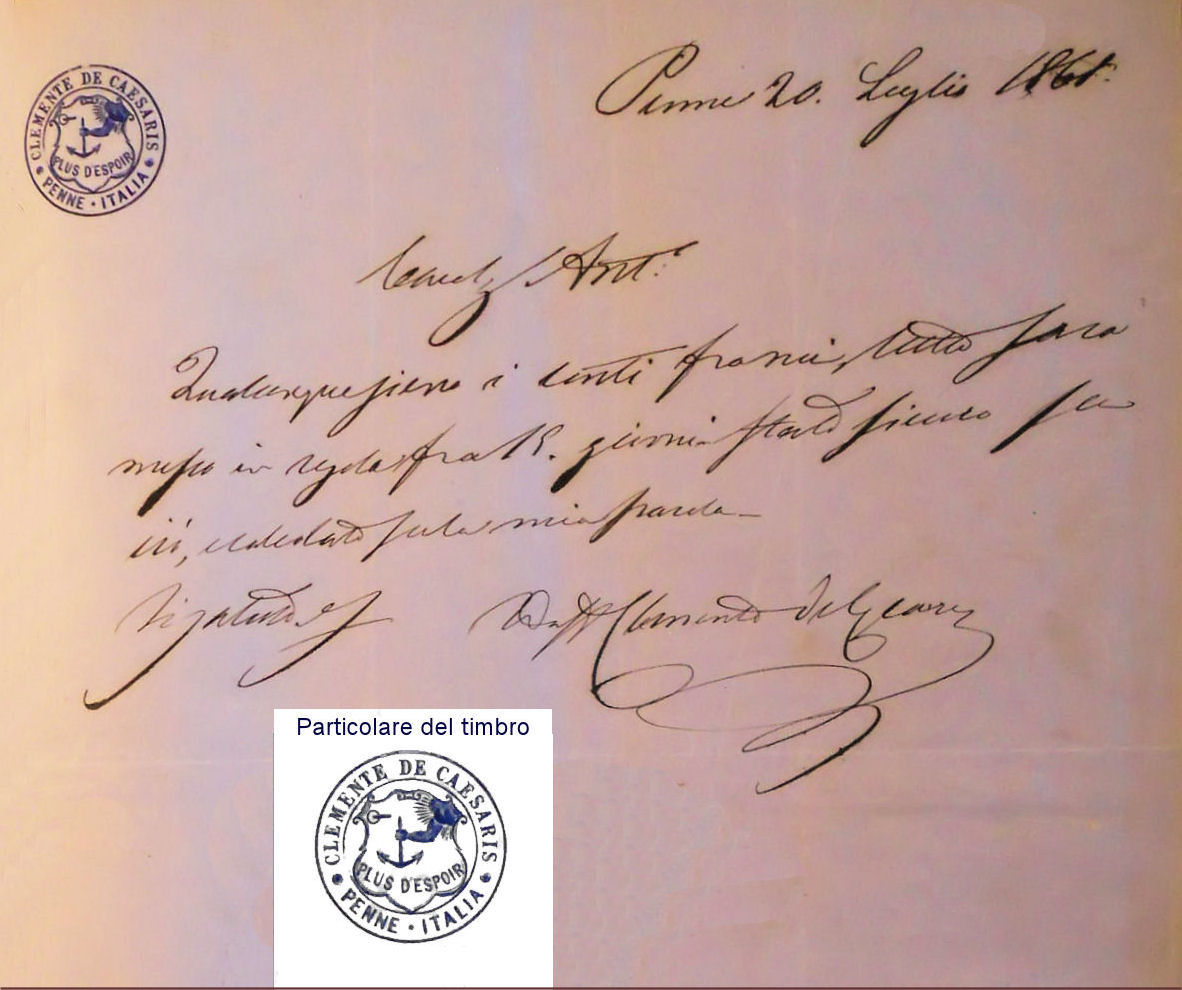 CLEMENTE DE CAESARIS
PLUS D'ESPOIR
PENNE · ITALIA
Penne 20. Luglio
Ant:
Qualunque siano i conti francesi, tutto sarà
messo in regola fra 15. giorni. State sicuro su
ciò, calcolate sulla mia parola_
Clemente de Caesaris
Particolare del timbro
CLEMENTE DE CAESARIS
PLUS D'ESPOIR
PENNE · ITALIA